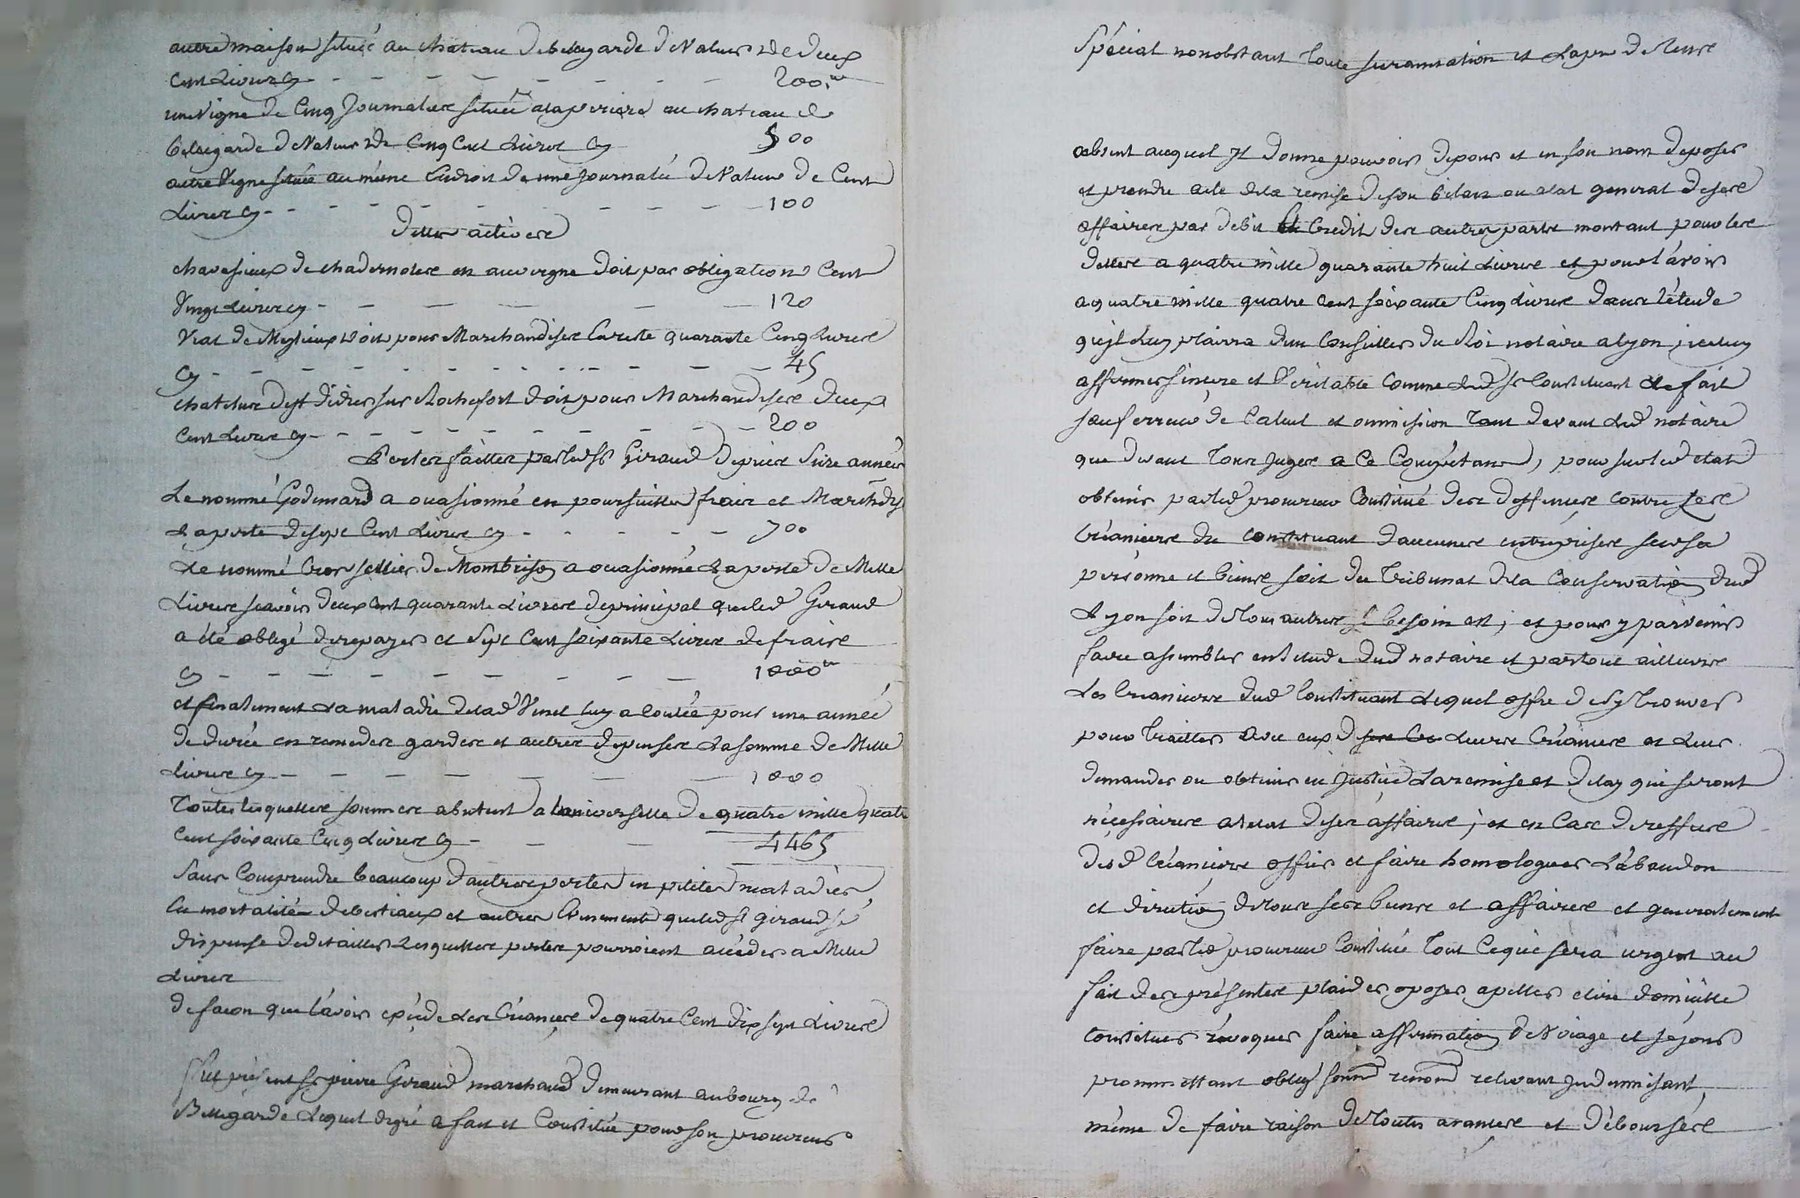 autre maison située au chateau de belegarde de Valeur de deux
Cent Livres Cy - - - - - - - - - 200.tt
une Vigne de Cinq Journalere située a la periere au chateau de
belegarde de Valeur de Cinq Cent Livres Cy 500
autre Vigne située au méme Endroit de une Journalée de Valeur de Cent
Livres Cy - - - - - - - - - 100
Dettes activere
chavasieux de chadernolere en auvergne doit par obligation Cent
Vingt Livres Cy - - - - - - - 120
Viat de doit pour Marchandisere Careste quarante Cinq Livrere
Cy - - - - - - - - - - 45
Rochefort doit pour Marchandisere deux
Cent Livrere Cy - - - - - - - - 200
Pertes faittes par led Sr Giraud depuis Sixe années
Le nommé Godimard a ocasionné en poursuittes fraix et
La perte de sept Cent Livres Cy - - - - - 700
Le nommé Cros sellier de Mombrison a ocasionné La perte de Mille
Livres scavoir deux cent quarante Livrere de principal que led Giraud
a été obligé de repayer et Sept Cent soixante Livres de fraire
Cy - - - - - - - - - 1000tt
et finalement La maladie de lad Vinet luy a coutée pour une année
de durée en remedere gardere et autres depensere La somme de Mille
Livres Cy - - - - - - - 1000
Toutes lesquellere sommere abutent a luniverselle de quatre mille quatre
Cent soixante Cinq Livres Cy - - - 4465
Sans Comprendre beaucoup dautrere pertes en petites maladies,
La mortalitée de bestiaux et autres Evenements que led Sr Giraud se
dispense de detailler Lesquellere pertere pourroient acéder a Mille
Livrere
de facon que L'avoir exçéde Lere Créançiere de quatre Cent dix sept Livrere
Fut présent Sr pierre Giraud marchand demeurant au bourg de
Bellegarde Lequel degré a fait et Constitué pour son procureur
Spécial nonobstant Toute surannation et Laps de Temse
absent auquel Il donne pouvoir de pour et en son nom deposer
et prendre acte de la remise de son bilan ou etat general de sere
affairere par debit et Credit dere autres parts montant pour lere
dettere a quatre mille quarante huit Livrere et pour L'avoir
a quatre mille quatre cent soixante Cinq Livrere dans L'étude
qu'jl Luy plaira d'un Conseiller du Roi notaire a lyon; icelluy
affirmer sincere et Véritable comme led Sr Constituant Le fait
sauf erreur de Calcul et ommission Tant devant led notaire
que devant Tour Jugere a Ce Compétans, pour sur led etat
obtenir par led procureur Constitué dere deffensere contre sere
Créanciere du constituant daucunere entreprisere sur sa
personne et biense soit du Tribunal de la Conservation dud
Lyon soit de Tous autrere si besoin est; et pour y parvenir
faire assembler en L'etude dud notaire et partout ailleurse
Les Créancierre dud Constituant Lequel offre de s'y Trouver
pour Traitter avec eux Leurse Créancere et Leur
demander ou obtenir en Justice La remise et delay qui seront
néçessairere a L'etat de ses affairere; et en Case de reffuse
desd Créancierre offrir et faire homologuer L'abandon
et direction de Touse sere biense et affairere et generalement
faire par led procureur Constitué Tout Ce qui sera urgent au
fait dere présentere plaider oposer apeller elire domicille
constituer révoquer faire affirmation de Voiage et séjour
promettant oblig soumd renond relevant Indemnisant,
méme de faire raison de Toutes avancere et débourserse